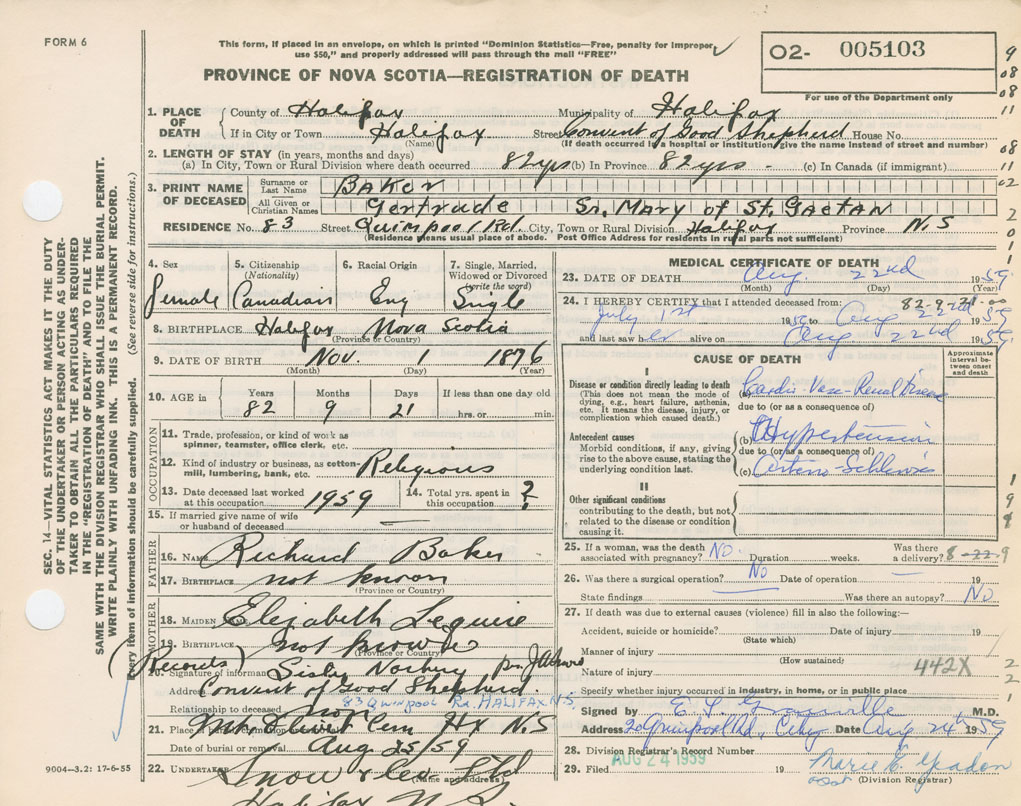 FORM 6
This form, if placed in an envelope, on which is printed "Dominion Statistics—Free, penalty for improper
use $50," and properly addressed will pass through the mail "FREE"
PROVINCE OF NOVA SCOTIA—REGISTRATION OF DEATH
02- 005103
For use of the Department only
1. PLACE OF DEATH
County of Halifax Municipality of Halifax
If in City or Town Halifax Street Convent of Good Shepherd House No.
(Name) (If death occurred in a hospital or institution, give the name instead of street and number)
2. LENGTH OF STAY (in years, months and days)
(a) In City, Town or Rural Division where death occurred 82 yrs (b) In Province 82 yrs - (c) In Canada (if immigrant)
3. PRINT NAME OF DECEASED
Surname or Last Name Baker
All Given or Christian Names Gertrude Sr. Mary of St. Gaetan
RESIDENCE No. 83 Street Quinpool Rd. City, Town or Rural Division Halifax Province N.S
(Residence means usual place of abode. Post Office Address for residents in rural parts not sufficient)
4. Sex female
5. Citizenship (Nationality) Canadian
6. Racial Origin Eng
7. Single, Married, Widowed or Divorced (write the word) Single
8. BIRTHPLACE Halifax Nova Scotia
(Province or Country)
9. DATE OF BIRTH Nov. 1 1876
(Month) (Day) (Year)
10. AGE in Years 82 Months 9 Days 21 If less than one day old hrs. or min.
OCCUPATION
11. Trade, profession, or kind of work as spinner, teamster, office clerk, etc.
12. Kind of industry or business, as cotton-mill, lumbering, bank, etc. Religious
13. Date deceased last worked at this occupation 1959
14. Total yrs. spent in this occupation ?
15. If married give name of wife or husband of deceased —
FATHER
16. NAME Richard Baker
17. BIRTHPLACE not known
(Province or Country)
MOTHER
18. MAIDEN NAME Elizabeth Lequire
19. BIRTHPLACE not know
(Province or Country)
(Records)
20. Signature of informant Sister Norbury
Address Convent of Good Shepherd.
83 Quinpool Rd. HALIFAX N.S.
Relationship to deceased non
21. Place Mt Olivet Cem Hx N.S
Date of burial or removal Aug 25/59
22. UNDERTAKER Snow & Co Ltd
(Name and address)
Halifax N.S.
MEDICAL CERTIFICATE OF DEATH
23. DATE OF DEATH Aug. 22nd 1959
(Month) (Day) (Year)
24. I HEREBY CERTIFY that I attended deceased from:
July 1st 1959 to Aug 22nd 1959
and last saw her alive on Aug 22nd 1959
CAUSE OF DEATH
Approximate interval between onset and death
I
Disease or condition directly leading to death
(This does not mean the mode of dying, e.g., heart failure, asthenia, etc. It means the disease, injury, or complication which caused death.)
(a) Cardio-Vasc-Renal Disease
due to (or as a consequence of)
Antecedent causes
Morbid conditions, if any, giving rise to the above cause, stating the underlying condition last.
(b) Hypertension
due to (or as a consequence of)
(c)
II
Other significant conditions
contributing to the death, but not related to the disease or condition causing it.
25. If a woman, was the death associated with pregnancy? NO. Duration weeks. Was there a delivery?
8-22-9
26. Was there a surgical operation? No Date of operation — 19
State findings Was there an autopsy? No
27. If death was due to external causes (violence) fill in also the following:—
Accident, suicide or homicide? Date of injury 19
(State which)
Manner of injury
(How sustained)
Nature of injury 442X
Specify whether injury occurred in industry, in home, or in public place
Signed by M.D.
Address Quinpool Rd., City Date Aug 24th 1959
28. Division Registrar's Record Number
29. Filed AUG 24 1959 19
(Division Registrar)
SEC. 14—VITAL STATISTICS ACT MAKES IT THE DUTY
OF THE UNDERTAKER OR PERSON ACTING AS UNDER-
TAKER TO OBTAIN ALL THE PARTICULARS REQUIRED
IN THE "REGISTRATION OF DEATH" AND TO FILE THE
SAME WITH THE DIVISION REGISTRAR WHO SHALL ISSUE THE BURIAL PERMIT.
WRITE PLAINLY WITH UNFADING INK. THIS IS A PERMANENT RECORD.
Every item of information should be carefully supplied. (See reverse side for instructions.)
9004—3.2: 17-6-55